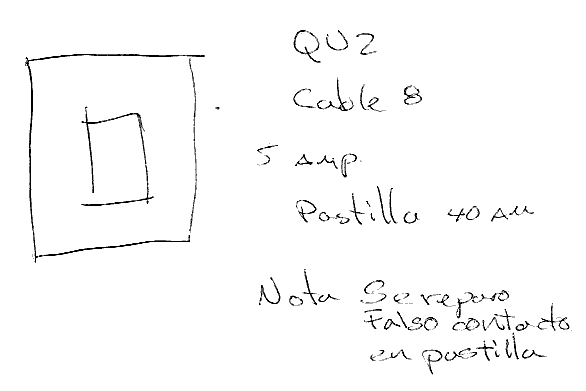 QU2
Cable 8
5 Amp.
Pastilla 40 AM
Nota Se reparo
Falso contacto
en pastilla